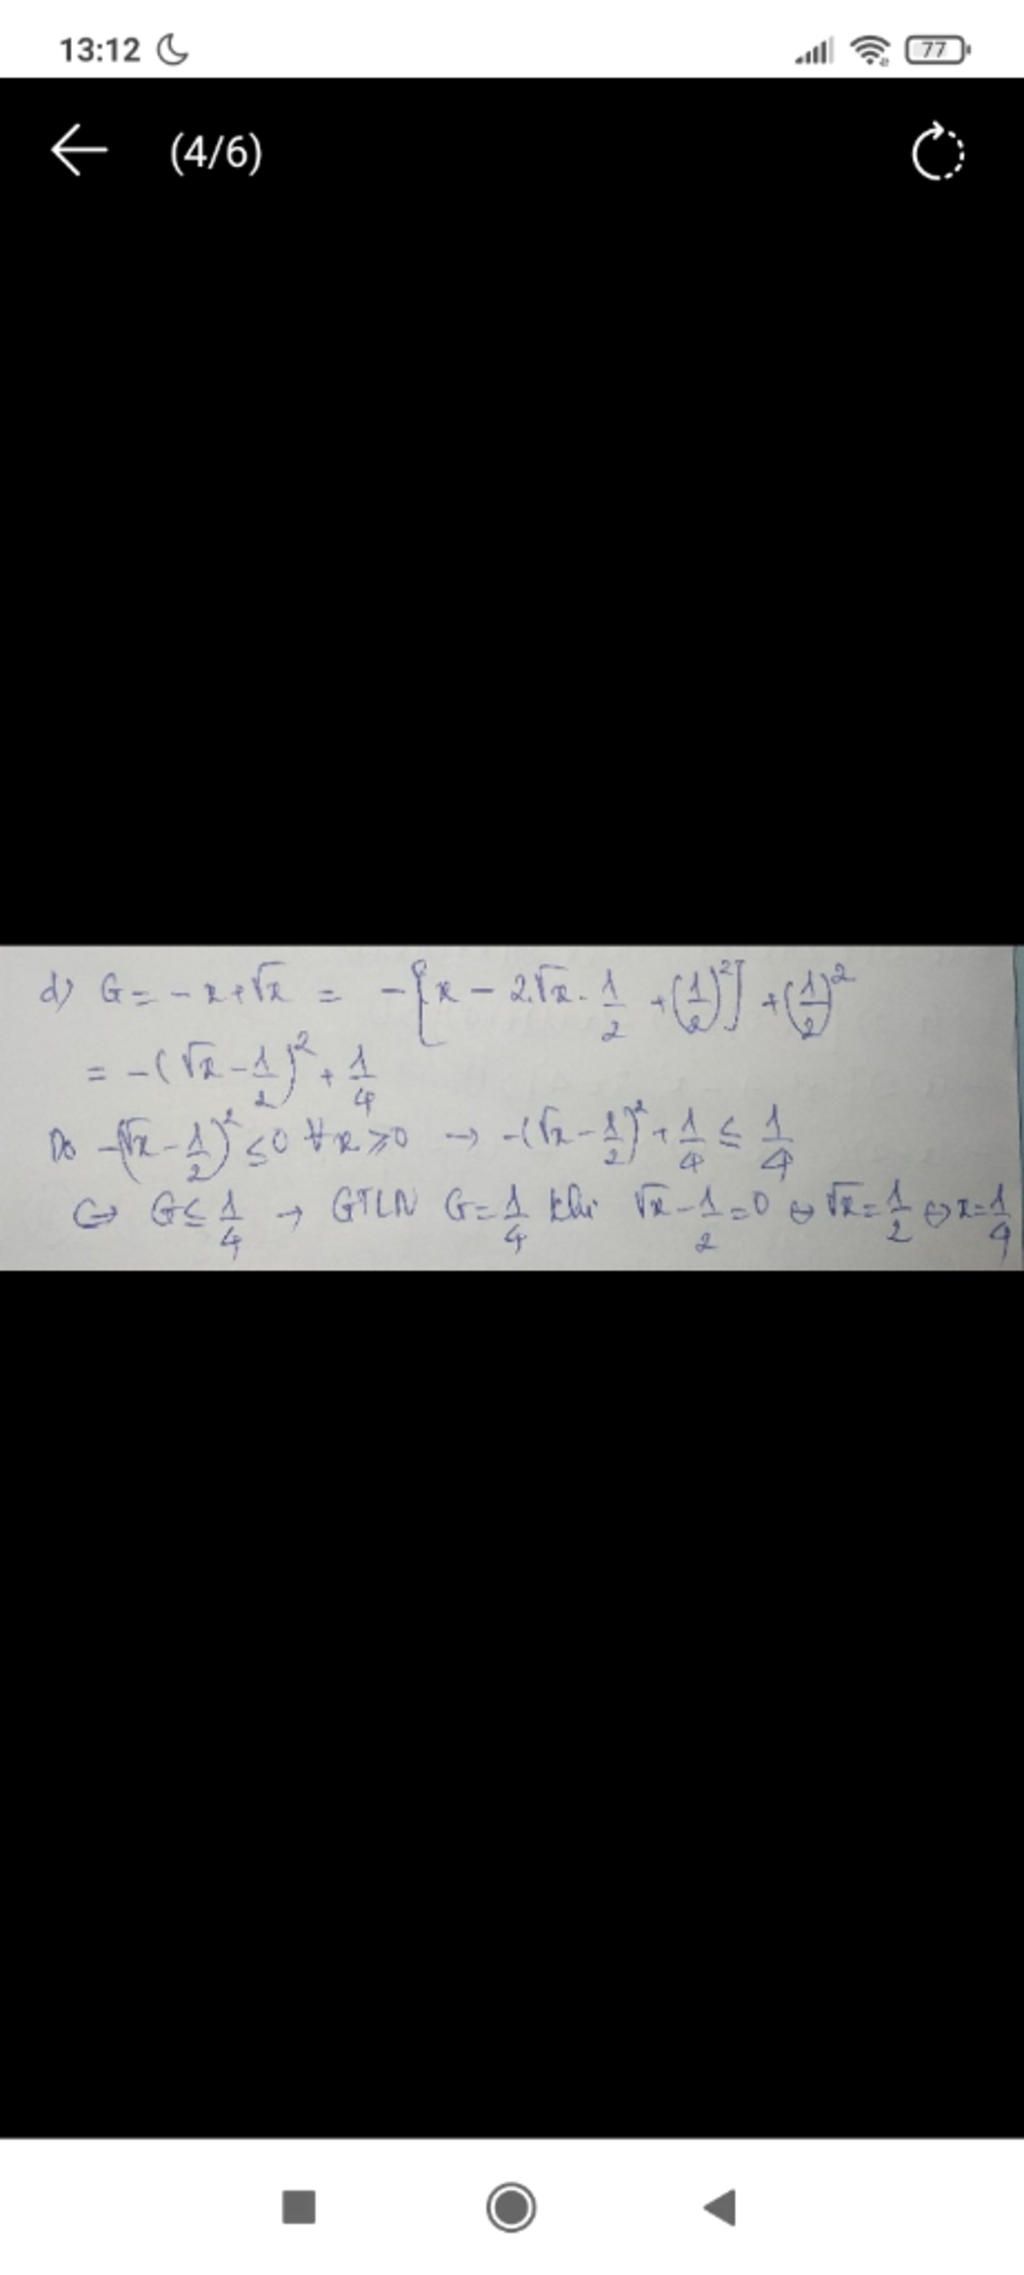 13:12
77
(4/6)
d) G = - x + √x = - [x - 2.√x . 1/2 + (1/2)²] + (1/2)²
= - (√x - 1/2)² + 1/4
Do - (√x - 1/2)² ≤ 0 ∀ x ≥ 0 → - (√x - 1/2)² + 1/4 ≤ 1/4
⇔ G ≤ 1/4 → GTLN G = 1/4 khi √x - 1/2 = 0 ⇔ √x = 1/2 ⇔ x = 1/4